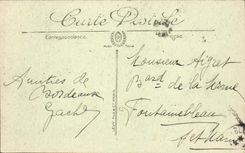 Carte Postale
Correspondance
Amitiés de
Bordeaux
Gache
Monsieur Aigret
Bard de la
Fontainebleau